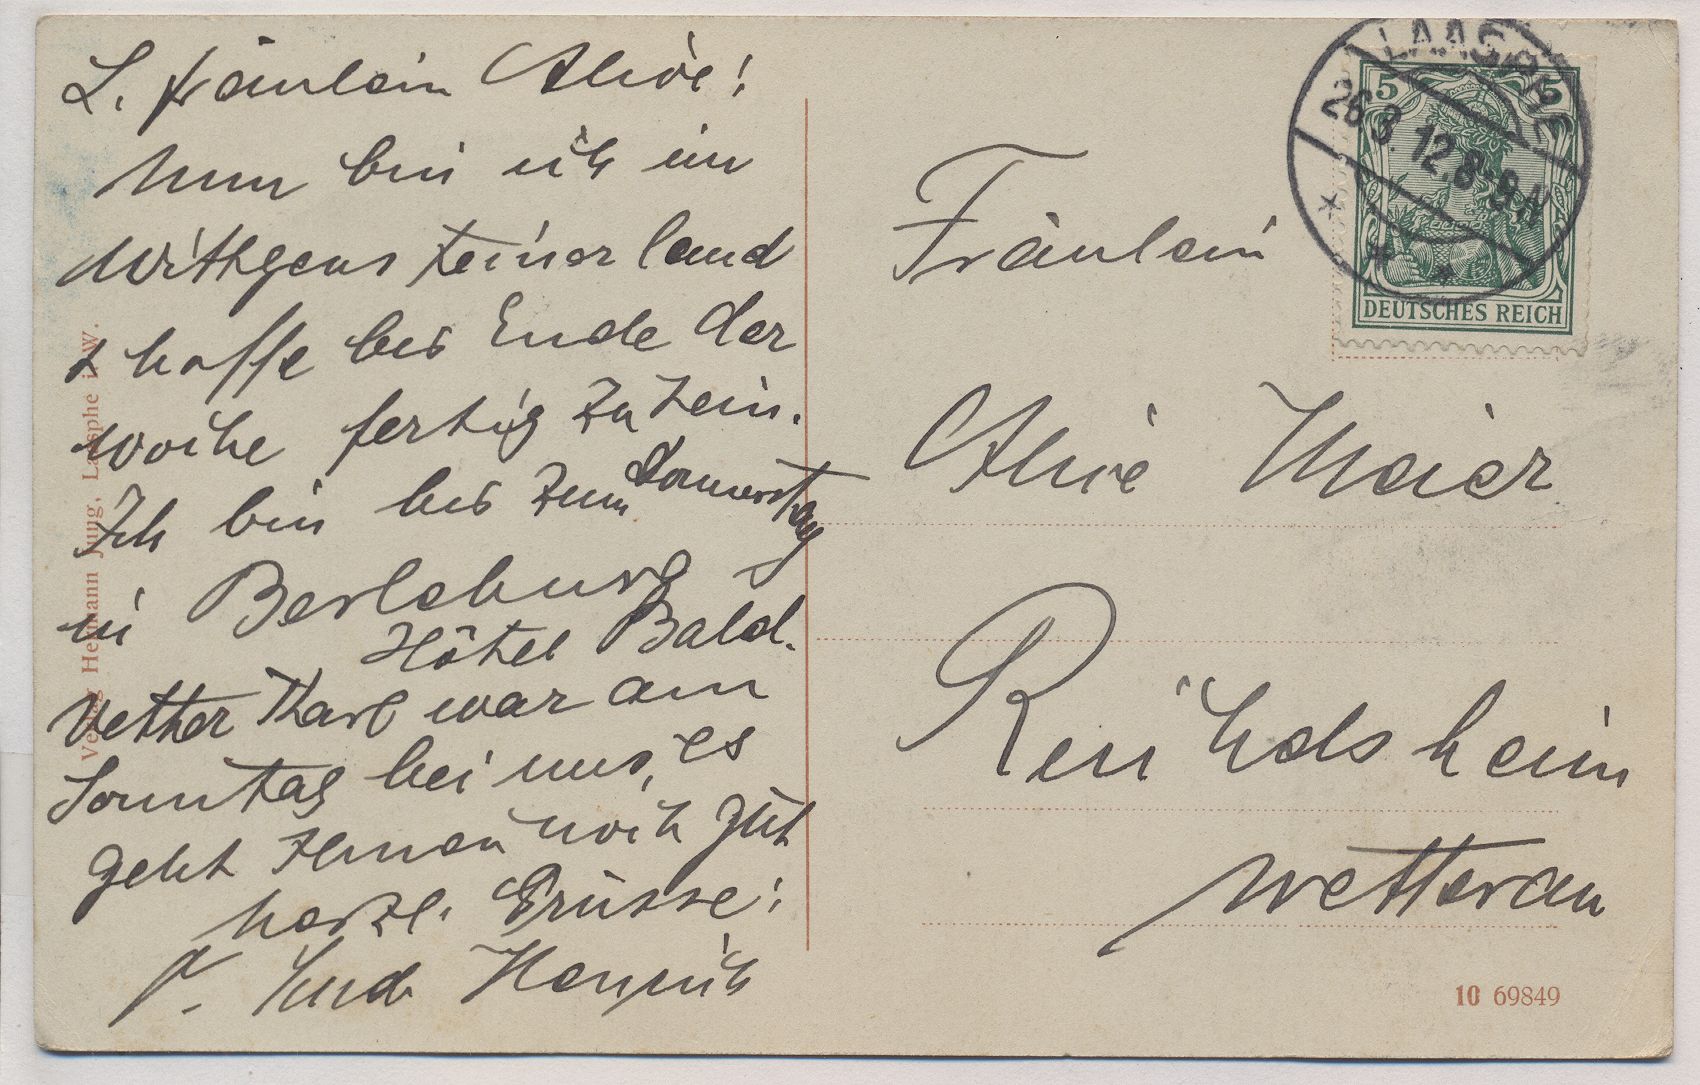 L. Fräulein Alice!
Nun bin ich im
Wittgensteinerland
& hoffe bis Ende der
Woche fertig zu sein.
Ich bin bis zum Donnerstag
in Berleburg
Hôtel Bald.
Vetter Karl war am
Sonntag bei uns, es
geht Ihnen noch gut
herzl. Grüsse!
Heinrich
Verlag Hermann Jung, Laasphe i. W.
LAASPHE
26.3.12.8-9N
5 5
DEUTSCHES REICH
Fräulein
Alice Meier
Reichelsheim
Wetterau
10 69849